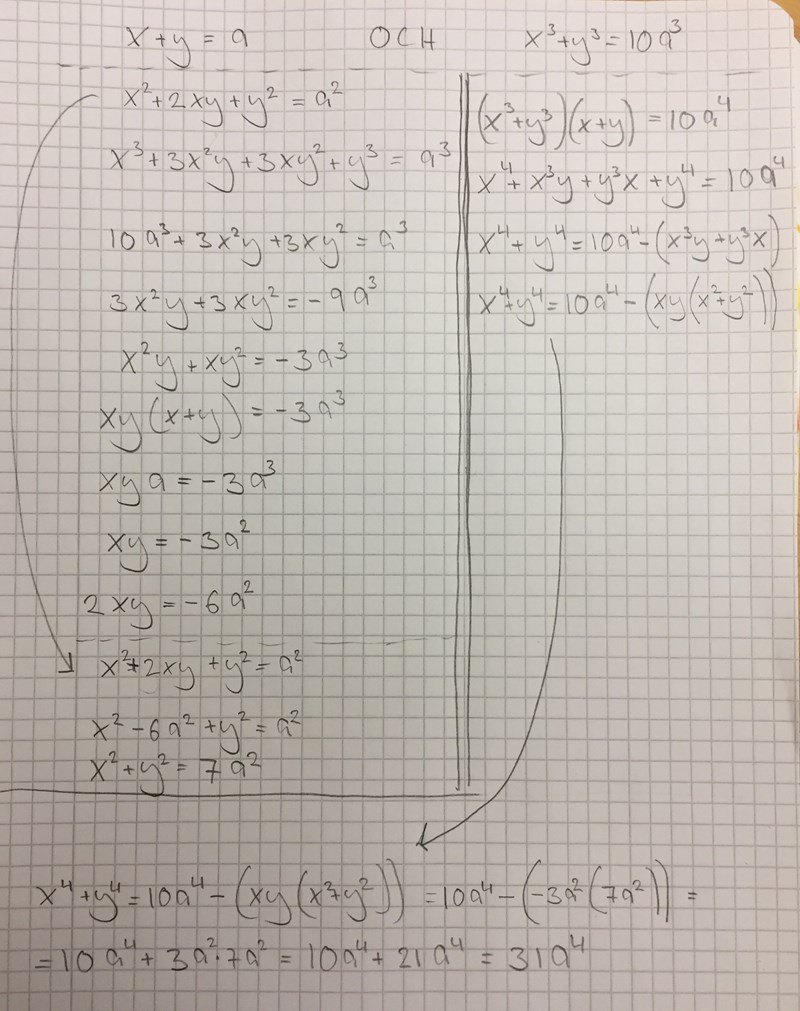 x + y = a OCH x³ + y³ = 10a³
x² + 2xy + y² = a²
x³ + 3x²y + 3xy² + y³ = a³
10a³ + 3x²y + 3xy² = a³
3x²y + 3xy² = -9a³
x²y + xy² = -3a³
xy(x+y) = -3a³
xy a = -3a³
xy = -3a²
2xy = -6a²
x² + 2xy + y² = a²
x² - 6a² + y² = a²
x² + y² = 7a²
(x³+y³)(x+y) = 10a⁴
x⁴ + x³y + y³x + y⁴ = 10a⁴
x⁴ + y⁴ = 10a⁴ - (x³y + y³x)
x⁴ + y⁴ = 10a⁴ - (xy(x²+y²))
x⁴ + y⁴ = 10a⁴ - (xy(x²+y²)) = 10a⁴ - (-3a²(7a²)) =
= 10a⁴ + 3a²·7a² = 10a⁴ + 21a⁴ = 31a⁴